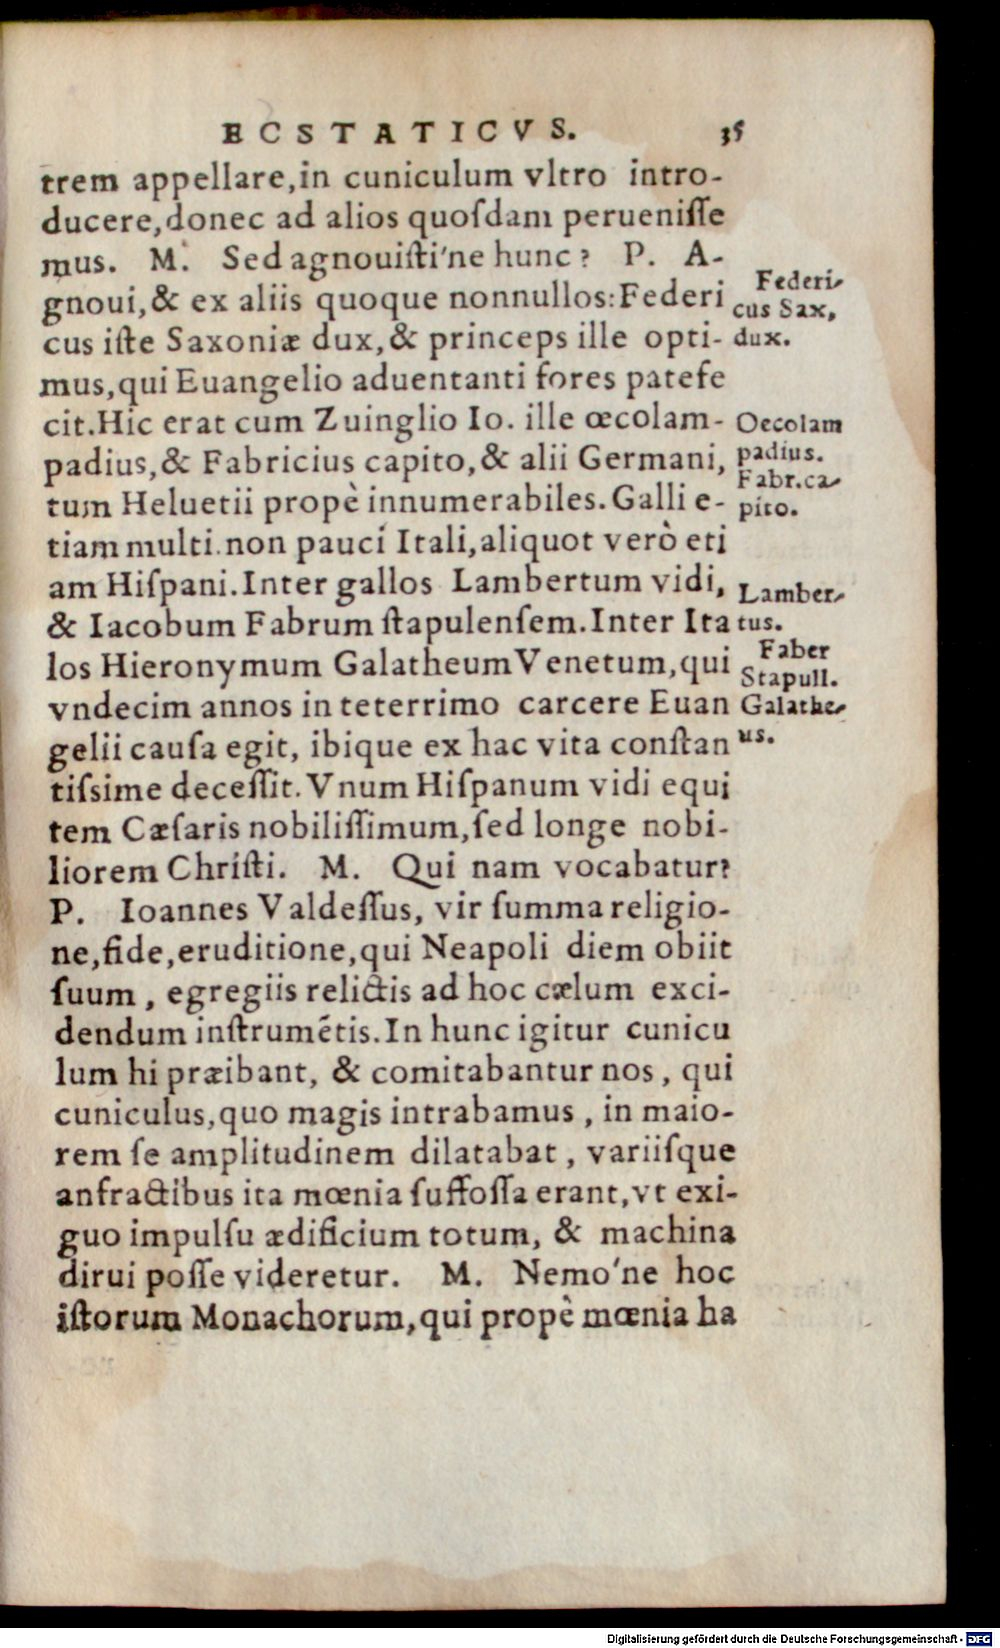 ECSTATICVS. 35
trem appellare,in cuniculum vltro intro-
ducere,donec ad alios quoſdam perueniſſe
mus. M. Sed agnouiſti'ne hunc? P. A-
gnoui,& ex aliis quoque nonnullos:Federi
cus iſte Saxoniæ dux,& princeps ille opti-
mus,qui Euangelio aduentanti fores patefe
cit.Hic erat cum Zuinglio Io. ille œcolam-
padius,& Fabricius capito,& alii Germani,
tum Heluetii propè innumerabiles.Galli e-
tiam multi.non pauci Itali,aliquot verò eti
am Hiſpani.Inter gallos Lambertum vidi,
& Iacobum Fabrum ſtapulenſem.Inter Ita
los Hieronymum Galatheum Venetum,qui
vndecim annos in teterrimo carcere Euan
gelii cauſa egit, ibique ex hac vita conſtan
tiſsime deceſſit. Vnum Hiſpanum vidi equi
tem Cæſaris nobiliſſimum,ſed longe nobi-
liorem Chriſti. M. Qui nam vocabatur?
P. Ioannes Valdeſſus, vir ſumma religio-
ne,fide,eruditione,qui Neapoli diem obiit
ſuum, egregiis relictis ad hoc cælum exci-
dendum inſtrumẽtis.In hunc igitur cunicu
lum hi præibant, & comitabantur nos, qui
cuniculus,quo magis intrabamus, in maio-
rem ſe amplitudinem dilatabat, variiſque
anfractibus ita mœnia ſuffoſſa erant,vt exi-
guo impulſu ædificium totum, & machina
dirui poſſe videretur. M. Nemo'ne hoc
iſtorum Monachorum,qui propè mœnia ha
Federi-
cus Sax,
dux.
Oecolam
padius.
Fabr.ca-
pito.
Lamber-
tus.
Faber
Stapull.
Galathe-
us.
Digitalisierung gefördert durch die Deutsche Forschungsgemeinschaft - DFG